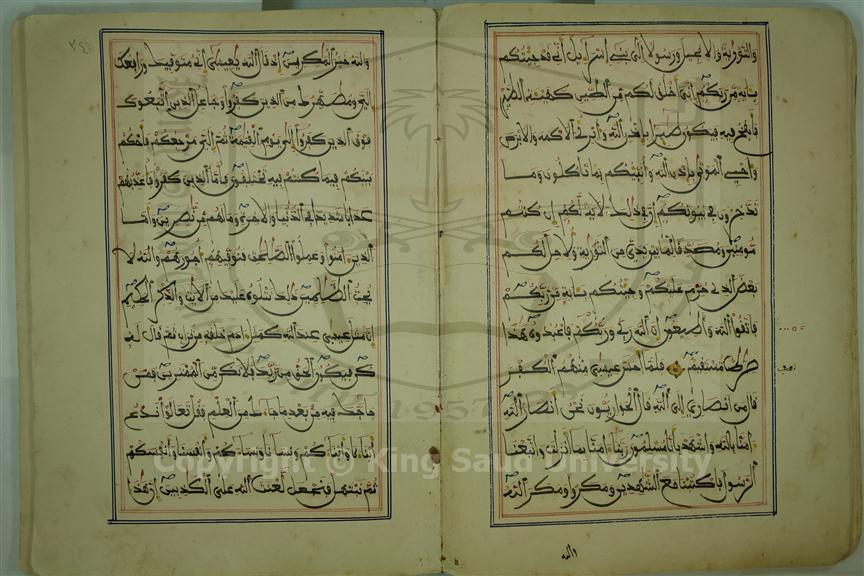 والتورية والانجيل ورسولا الى بني اسراءيل اني قد جئتكم
باية من ربكم اني اخلق لكم من الطين كهيئة الطير
فانفخ فيه فيكون طيرا باذن الله وابرئ الاكمه والابرص
واحي الموتى باذن الله وانبئكم بما تاكلون وما
تدخرون في بيوتكم ان في ذلك لاية لكم ان كنتم
مومنين ومصدقا لما بين يدي من التورية ولاحل لكم
بعض الذي حرم عليكم وجئتكم باية من ربكم
فاتقوا الله واطيعون ان الله ربي وربكم فاعبدوه هذا
صرط مستقيم فلما احس عيسى منهم الكفر
قال من انصاري الى الله قال الحواريون نحن انصار الله
امنا بالله واشهد بانا مسلمون ربنا امنا بما انزلت واتبعنا
الرسول فاكتبنا مع الشهدين ومكروا ومكر الله
والله
والله خير المكرين اذ قال الله يعيسى اني متوفيك ورافعك
الي ومطهرك من الذين كفروا وجاعل الذين اتبعوك
فوق الذين كفروا الى يوم القيمة ثم الي مرجعكم فاحكم
بينكم فيما كنتم فيه تختلفون فاما الذين كفروا فاعذبهم
عذابا شديدا في الدنيا والاخرة وما لهم من نصرين واما
الذين امنوا وعملوا الصلحت فنوفيهم اجورهم والله لا
يحب الظلمين ذلك نتلوه عليك من الايت والذكر الحكيم
ان مثل عيسى عند الله كمثل ادم خلقه من تراب ثم قال له
كن فيكون الحق من ربك فلا تكن من الممترين فمن
حاجك فيه من بعد ما جاءك من العلم فقل تعالوا ندع
ابناءنا وابناءكم ونساءنا ونساءكم وانفسنا وانفسكم
ثم نبتهل فنجعل لعنت الله على الكذبين ان هذا
Copyright © King Saud University
1957